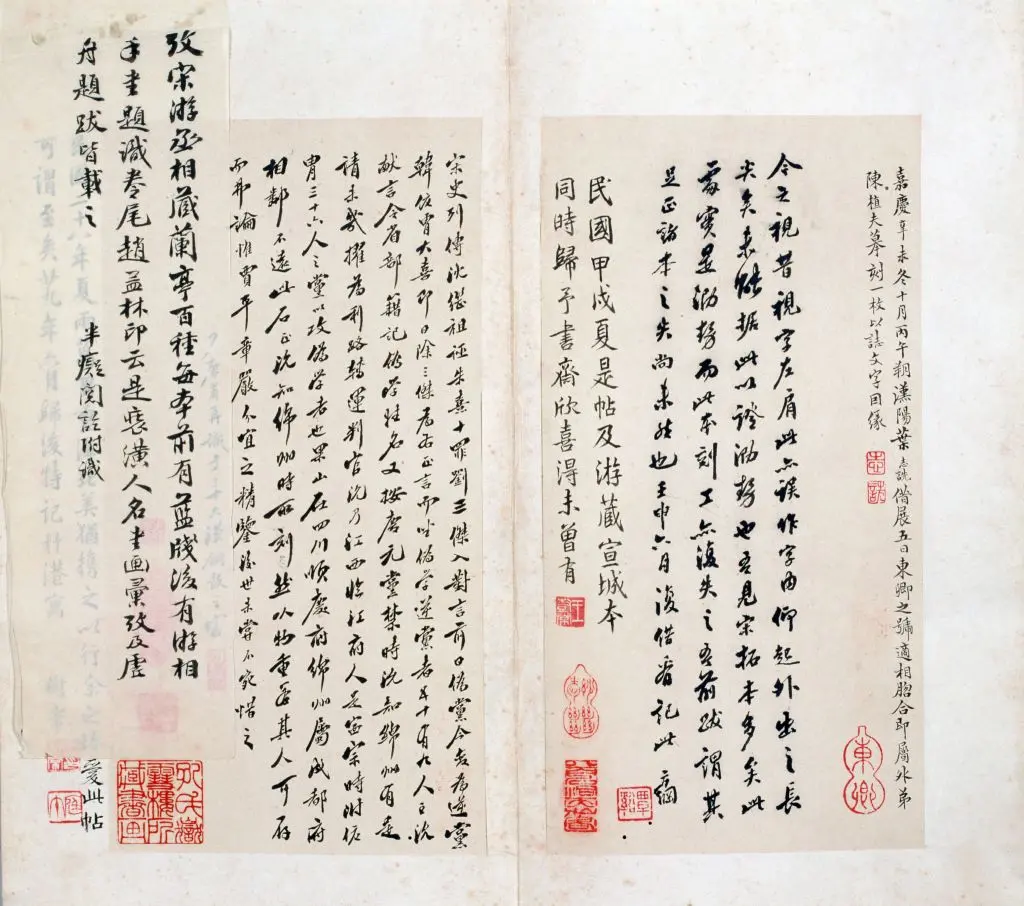 嘉慶辛未冬十月丙午朔漢陽葉志詵借展五日東卿之號適相脗合即屬外弟
陳植夫摹刻一枚以誌文字因緣
志詵
東卿
令之視昔視字左肩此亦誤作字由仰起外出之長
尖矣未能據此以證泐勢也吾見宋拓本多矣此
處實是泐勢而此本刻工亦復失之吾前跋謂其
足正諸本之失尚未然也壬申六月復借看記此 綱
覃谿
民國甲戌夏是帖及游藏宣城本
同時歸予書齋欣喜得未曾有
宋史列傳沈繼祖誣朱熹十罪劉三傑入對言前日偽黨今變為逆黨
韓侂胄大喜即日除三傑為右正言而坐偽學逆黨者五十有九人王沇
獻言令省部籍記偽學姓名又按慶元黨禁時沇知綿州有是
請未幾擢為利路轉運判官沇乃江西臨江府人是寧宗時附侂
胄三十六人之黨以攻偽學者也果山在四川順慶府綿州屬成都府
相鄰不遠此石正沇知綿州時所刻然以物重每其人可存
不弗論惟賈平章嚴分宜之精鑒後世未嘗不寃惜之
攷宋游丞相藏蘭亭百種每本前有藍牋後有游相
手書題識卷尾趙孟林印云是裝潢人名書畫彙攷及虛
舟題跋皆載之
半癡閱註附識
愛此帖